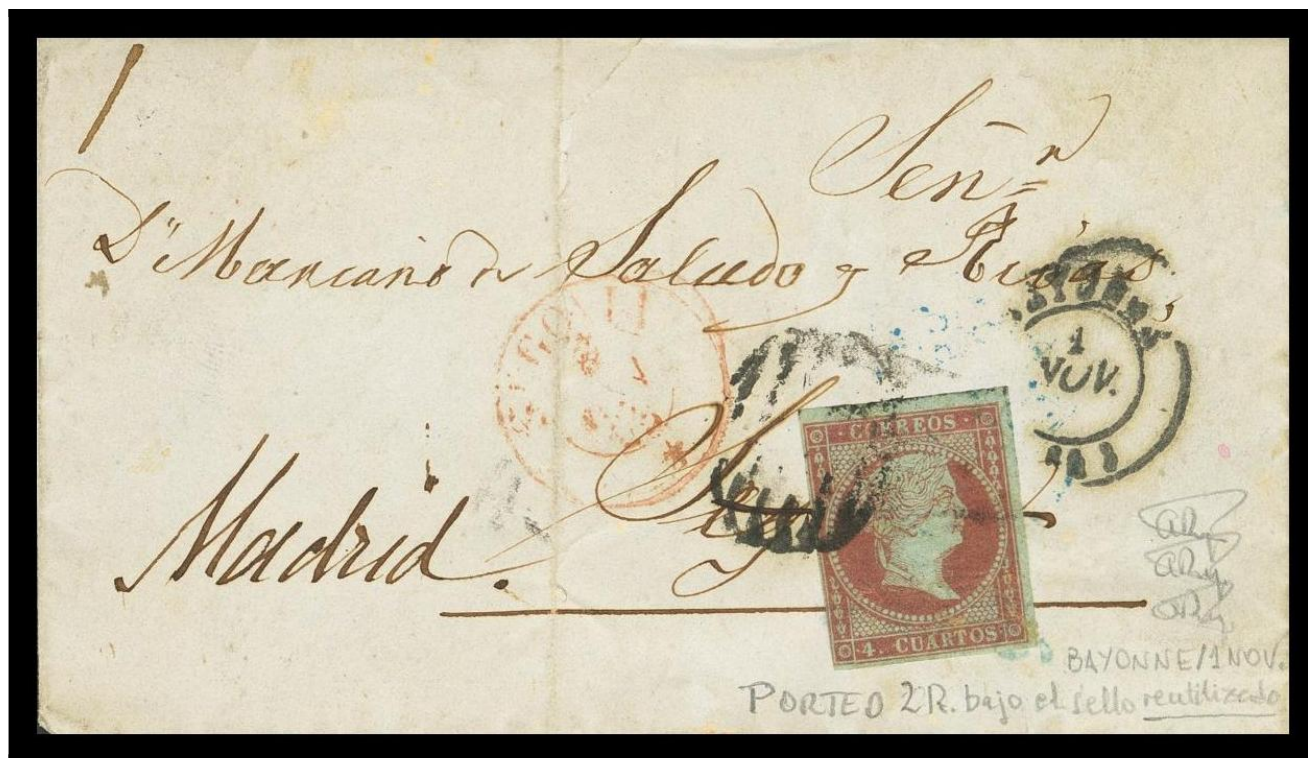 Señr
Dn Mariano de Salcedo y Rivas,
Madrid.
SEGOVIA
1
NOV.
CORREOS
4. CUARTOS
BAYONNE/1 NOV.
PORTEO 2R. bajo el sello reutilizado